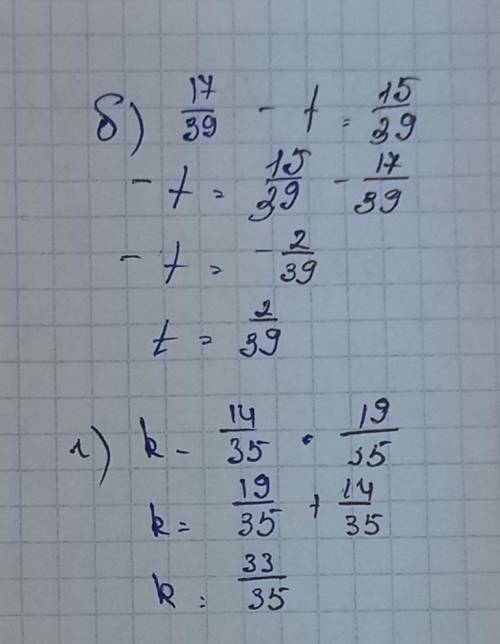 б) 17/39 - t = 15/39
- t = 15/39 - 17/39
- t = - 2/39
t = 2/39
г) k - 14/35 = 19/35
k = 19/35 + 14/35
k = 33/35